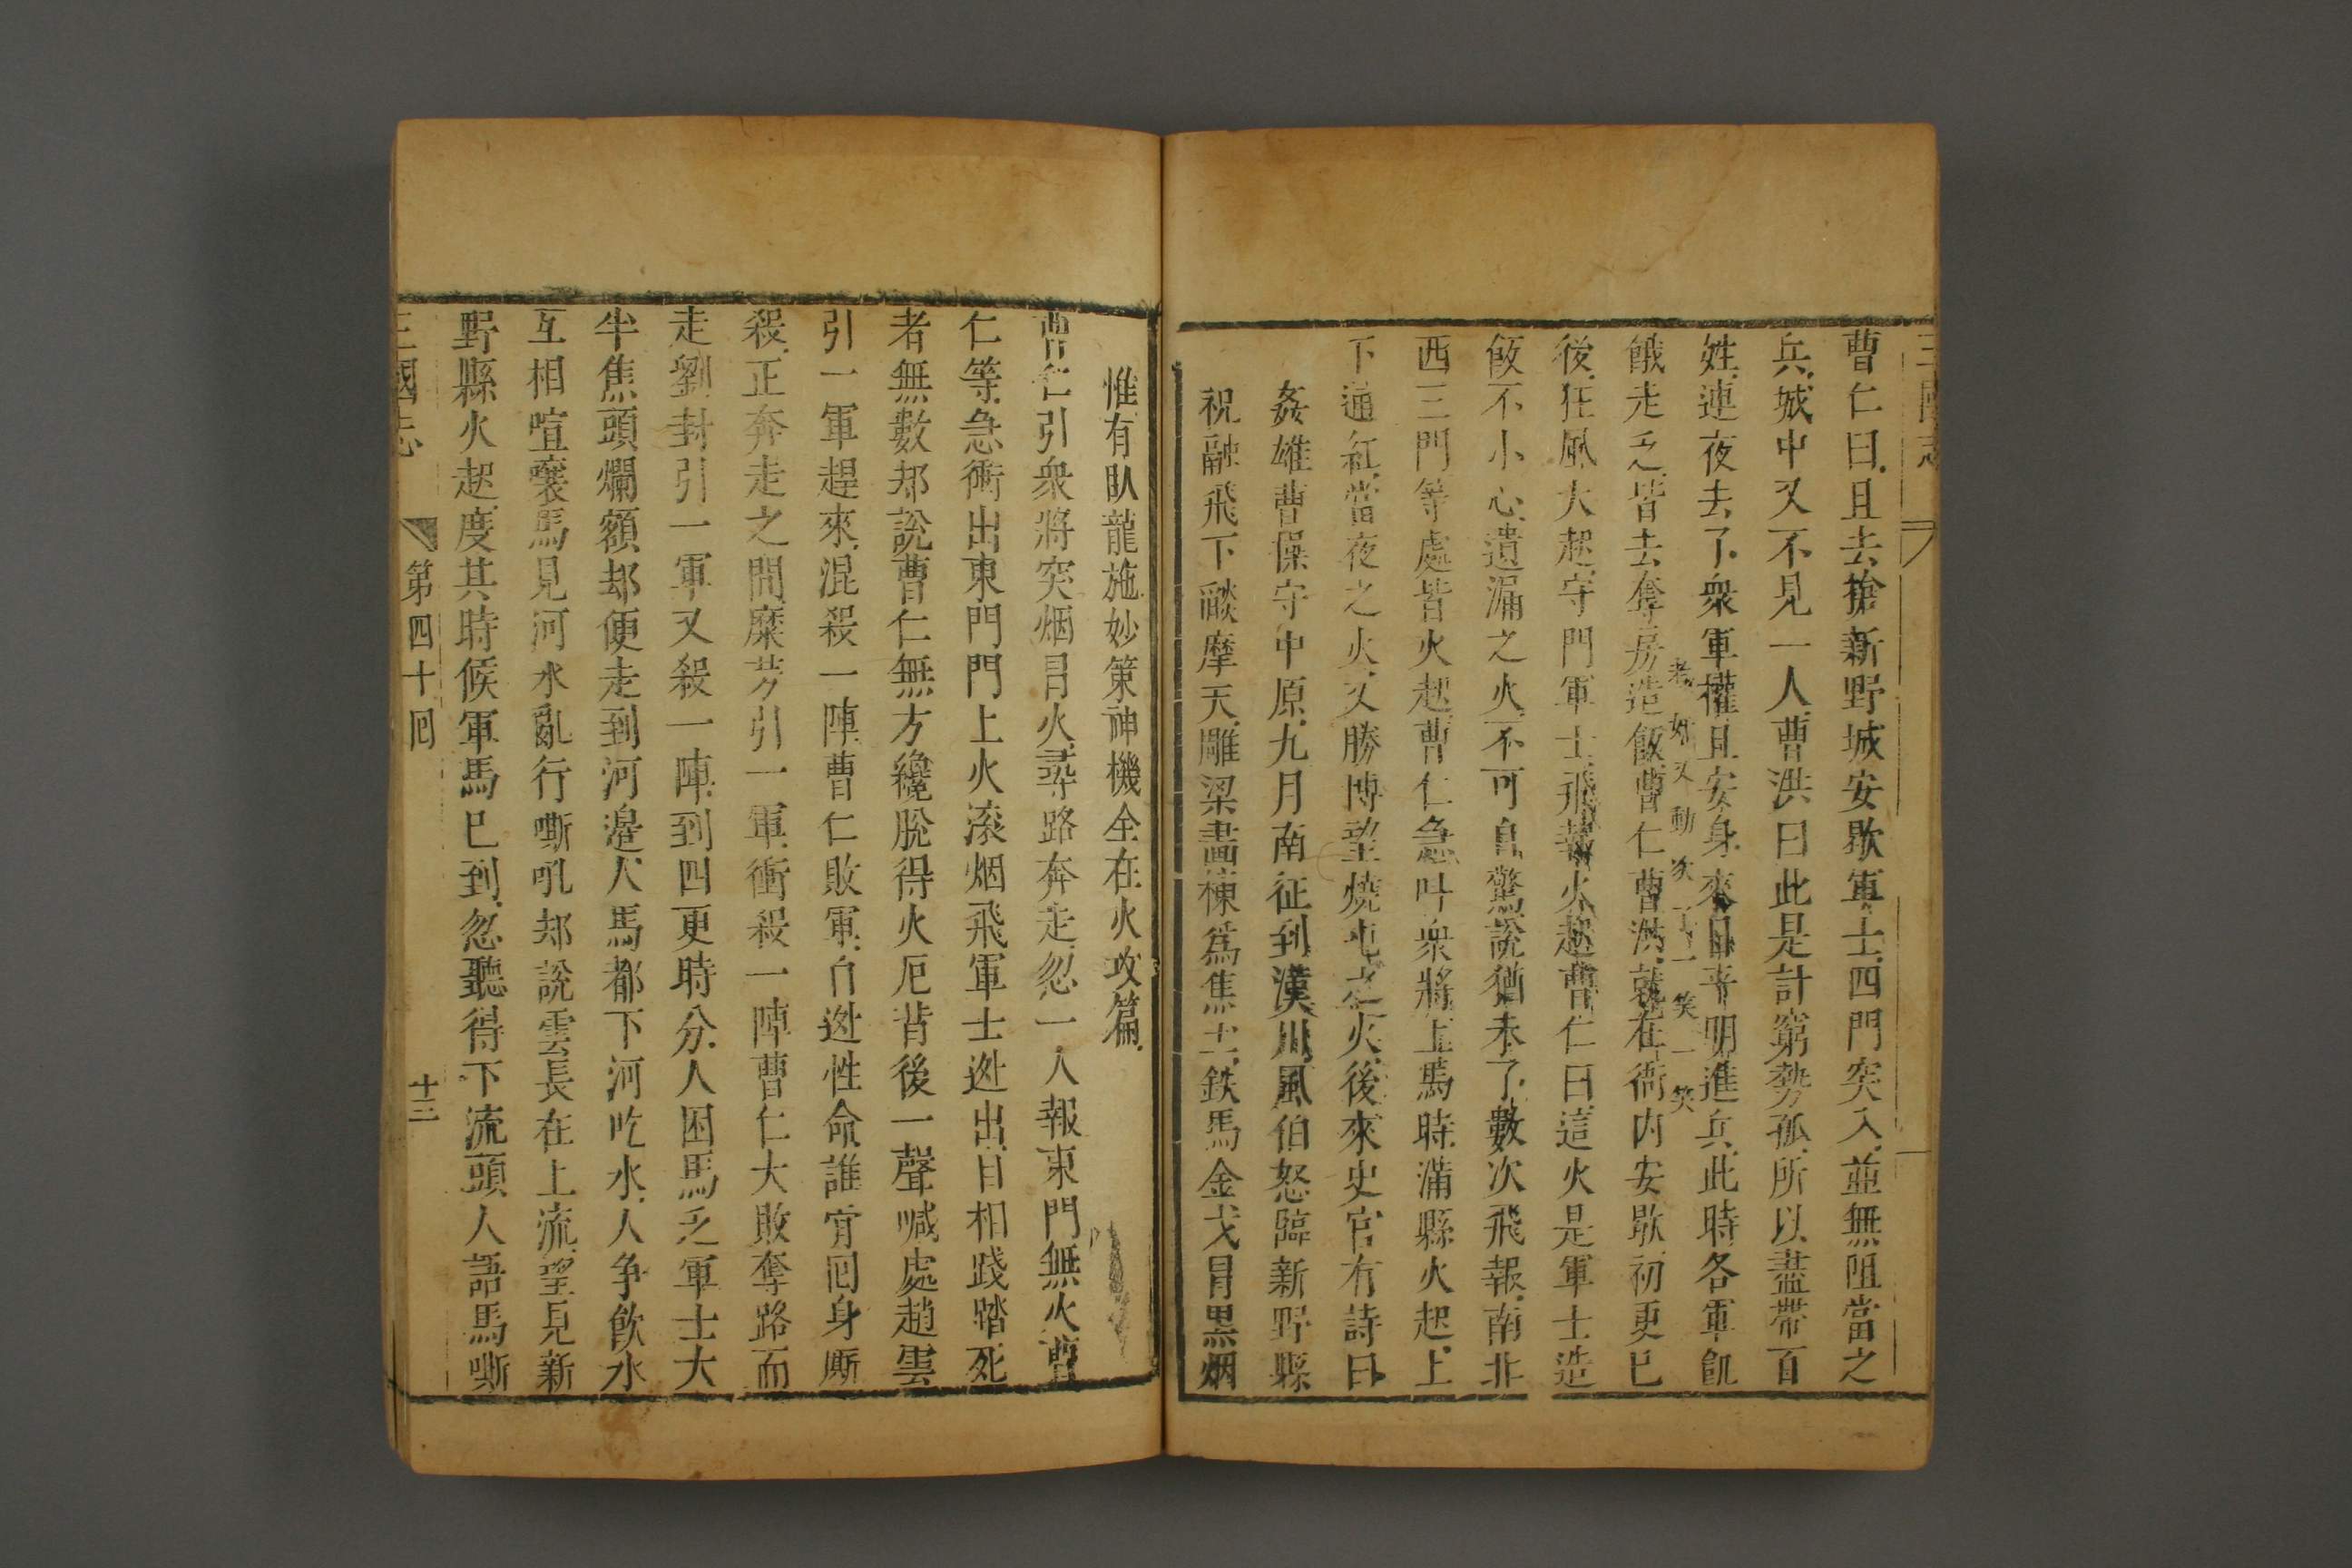 三國志
曹仁曰且去搶新野城安歇軍士四門突入並無阻當之
兵城中又不見一人曹洪曰此是計窮勢孤所以盡帶百
姓連夜去了衆軍權且安身來日平明進兵此時各軍飢
餓走乏皆去奪房造飯曹仁曹洪就在衙内安歇初更已
老奸又動次一笑一笑
後狂風大起守門軍士飛報火起曹仁曰這火是軍士造
飯不小心遺漏之火不可自驚說猶未了數次飛報南北
西三門等處皆火起曹仁急叫衆將上馬時滿縣火起上
下通紅當夜之火又勝博望燒屯之火後來史官有詩曰
姦雄曹操守中原九月南征到漢川風伯怒臨新野縣
祝融飛下燄摩天雕梁畫棟爲焦土鉄馬金戈冒黑烟
惟有臥龍施妙策神機全在火攻篇
曹仁引衆將突烟冒火尋路奔走忽一人報東門無火曹
仁等急衝出東門門上火滚烟飛軍士迯出自相踐踏死
者無數却說曹仁無方纔脫得火厄背後一聲喊處趙雲
引一軍趕來混殺一陣曹仁敗軍自迯性命誰肯回身厮
殺正奔走之間糜芳引一軍衝殺一陣曹仁大敗奪路而
走劉封引一軍又殺一陣到四更時分人困馬乏軍士大
半焦頭爛額却便走到河邊人馬都下河吃水人爭飲水
互相喧嚷馬見河水亂行嘶吼却說雲長在上流望見新
野縣火起度其時候軍馬已到忽聽得下流頭人語馬嘶
三國志 第四十回 十三